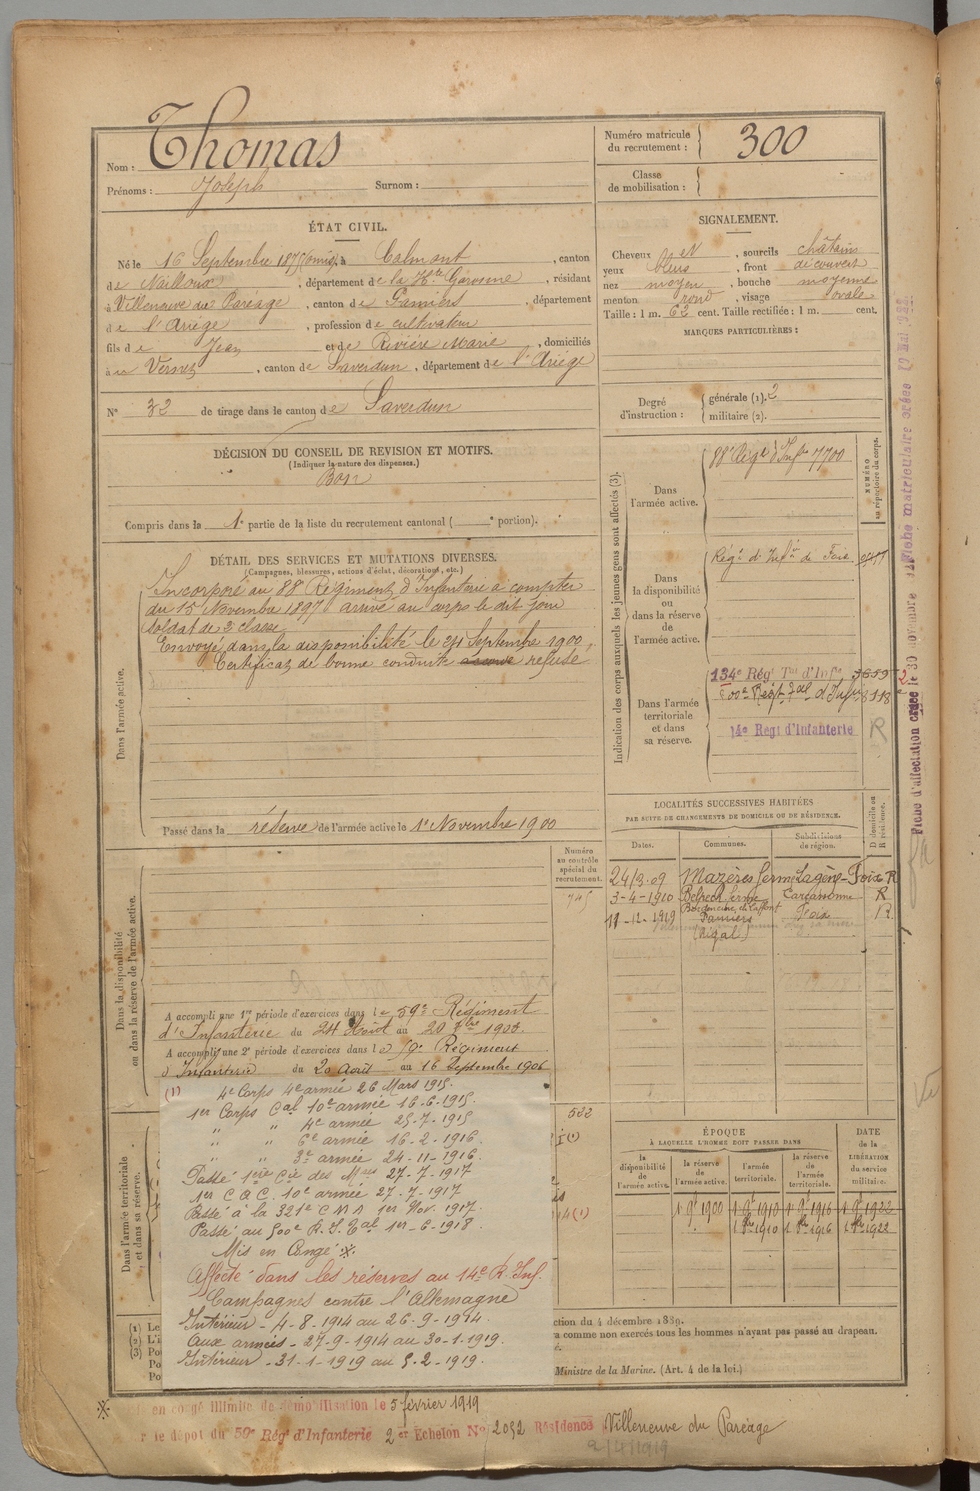 Nom : Thomas
Prénoms : Joseph Surnom :
Numéro matricule du recrutement : 300
Classe de mobilisation :
ÉTAT CIVIL.
Né le 16 Septembre à Calmont, canton
de Nailloux, département de la Hte Garonne, résidant
à Villeneuve du Paréage, canton de Pamiers, département
de l'Ariège, profession de cultivateur
fils de Jean et de Rivière Marie, domiciliés
à Vernet, canton de Saverdun, département de l'Ariège
N° 32 de tirage dans le canton de Saverdun
DÉCISION DU CONSEIL DE REVISION ET MOTIFS.
(Indiquer la nature des dispenses.)
Bon
Compris dans la 1e partie de la liste du recrutement cantonal ( e portion).
SIGNALEMENT.
Cheveux , sourcils châtain
yeux bleus , front découvert
nez moyen , bouche moyenne
menton rond , visage ovale
Taille : 1 m. 62 cent. Taille rectifiée : 1 m. cent.
MARQUES PARTICULIÈRES :
Degré d'instruction : générale (1). 2
militaire (2).
DÉTAIL DES SERVICES ET MUTATIONS DIVERSES.
(Campagnes, blessures, actions d'éclat, décorations, etc.)
Dans l'armée active.
Incorporé au 88e Régiment d'Infanterie à compter
du 15 Novembre 1897 arrivé au corps le dit jour
soldat de 2e classe
Envoyé dans la disponibilité le 24 Septembre 1900,
Certificat de bonne conduite refusé
Passé dans la réserve de l'armée active le 1er Novembre 1900
Indication des corps auxquels les jeunes gens sont affectés (3).
NUMÉRO au répertoire du corps.
Dans l'armée active.
88e Régt d'Infie 7700
Dans la disponibilité ou dans la réserve de l'armée active.
Régt d'Infie de Foix
Dans l'armée territoriale et dans sa réserve.
134e Régt Tal d'Infie
500e Régt Tal d'Infie 8118
14e Régt d'Infanterie R
LOCALITÉS SUCCESSIVES HABITÉES
PAR SUITE DE CHANGEMENTS DE DOMICILE OU DE RÉSIDENCE.
Dates. Communes. Subdivisions de région. D domicile ou R résidence.
24/3.09 Mazères ferme Lagène - Foix R
3-4-1910 Belpech ferme Carcassonne R
Bordeneuve de Laffont
11-11-1919 Pamiers Foix R
(Rigal)
Numéro au contrôle spécial du recrutement.
745
Dans la disponibilité ou dans la réserve de l'armée active.
A accompli une 1re période d'exercices dans le 59e Régiment
d'Infanterie du 24 Août au 20 7bre 1903
A accompli une 2e période d'exercices dans le 59e Régiment
d'Infanterie du 20 Août au 16 Septembre 1906
Dans l'armée territoriale et dans sa réserve.
(1) 4e Corps 4e armée 26 Mars 1915.
1er Corps Cal 10e armée 16-6-1915.
" " 4e armée 25-7-1915
" " 6e armée 16-2-1916.
" " 3e armée 24-11-1916.
Passé 1ère Cie des Mses 27-7-1917
1er C A C. 10e armée 27-7-1917
Passé à la 321e C M A 1er Nov. 1917.
Passé au 500e R. I. Tal 1er-6-1918.
Mis en Congé ※.
Affecté dans les réserves au 14e R. Inf.
Campagnes contre l'Allemagne
Intérieur - 4-8-1914 au 26-9-1914.
Aux armées - 27-9-1914 au 30-1-1919.
Intérieur - 31-1-1919 au 5-2-1919.
522
ÉPOQUE
À LAQUELLE L'HOMME DOIT PASSER DANS
la disponibilité de l'armée active.
la réserve de l'armée active.
l'armée territoriale.
la réserve de l'armée territoriale.
DATE de la LIBÉRATION du service militaire.
1 9e 1900 1 9e 1910 1 9e 1916 1 9e 1922
1 8bre 1910 1 8bre 1916 1 8bre 1922
ction du 4 décembre 1889.
a comme non exercés tous les hommes n'ayant pas passé au drapeau.
Ministre de la Marine. (Art. 4 de la loi.)
※ en congé illimité de démobilisation le 5 février 1919
le dépôt du 59e Régt d'Infanterie 2er Echelon N° 2052 Résidence Villeneuve du Paréage
2/4/1919
Fiche d'affectation créée le 30 novembre
Fiche matriculaire créée